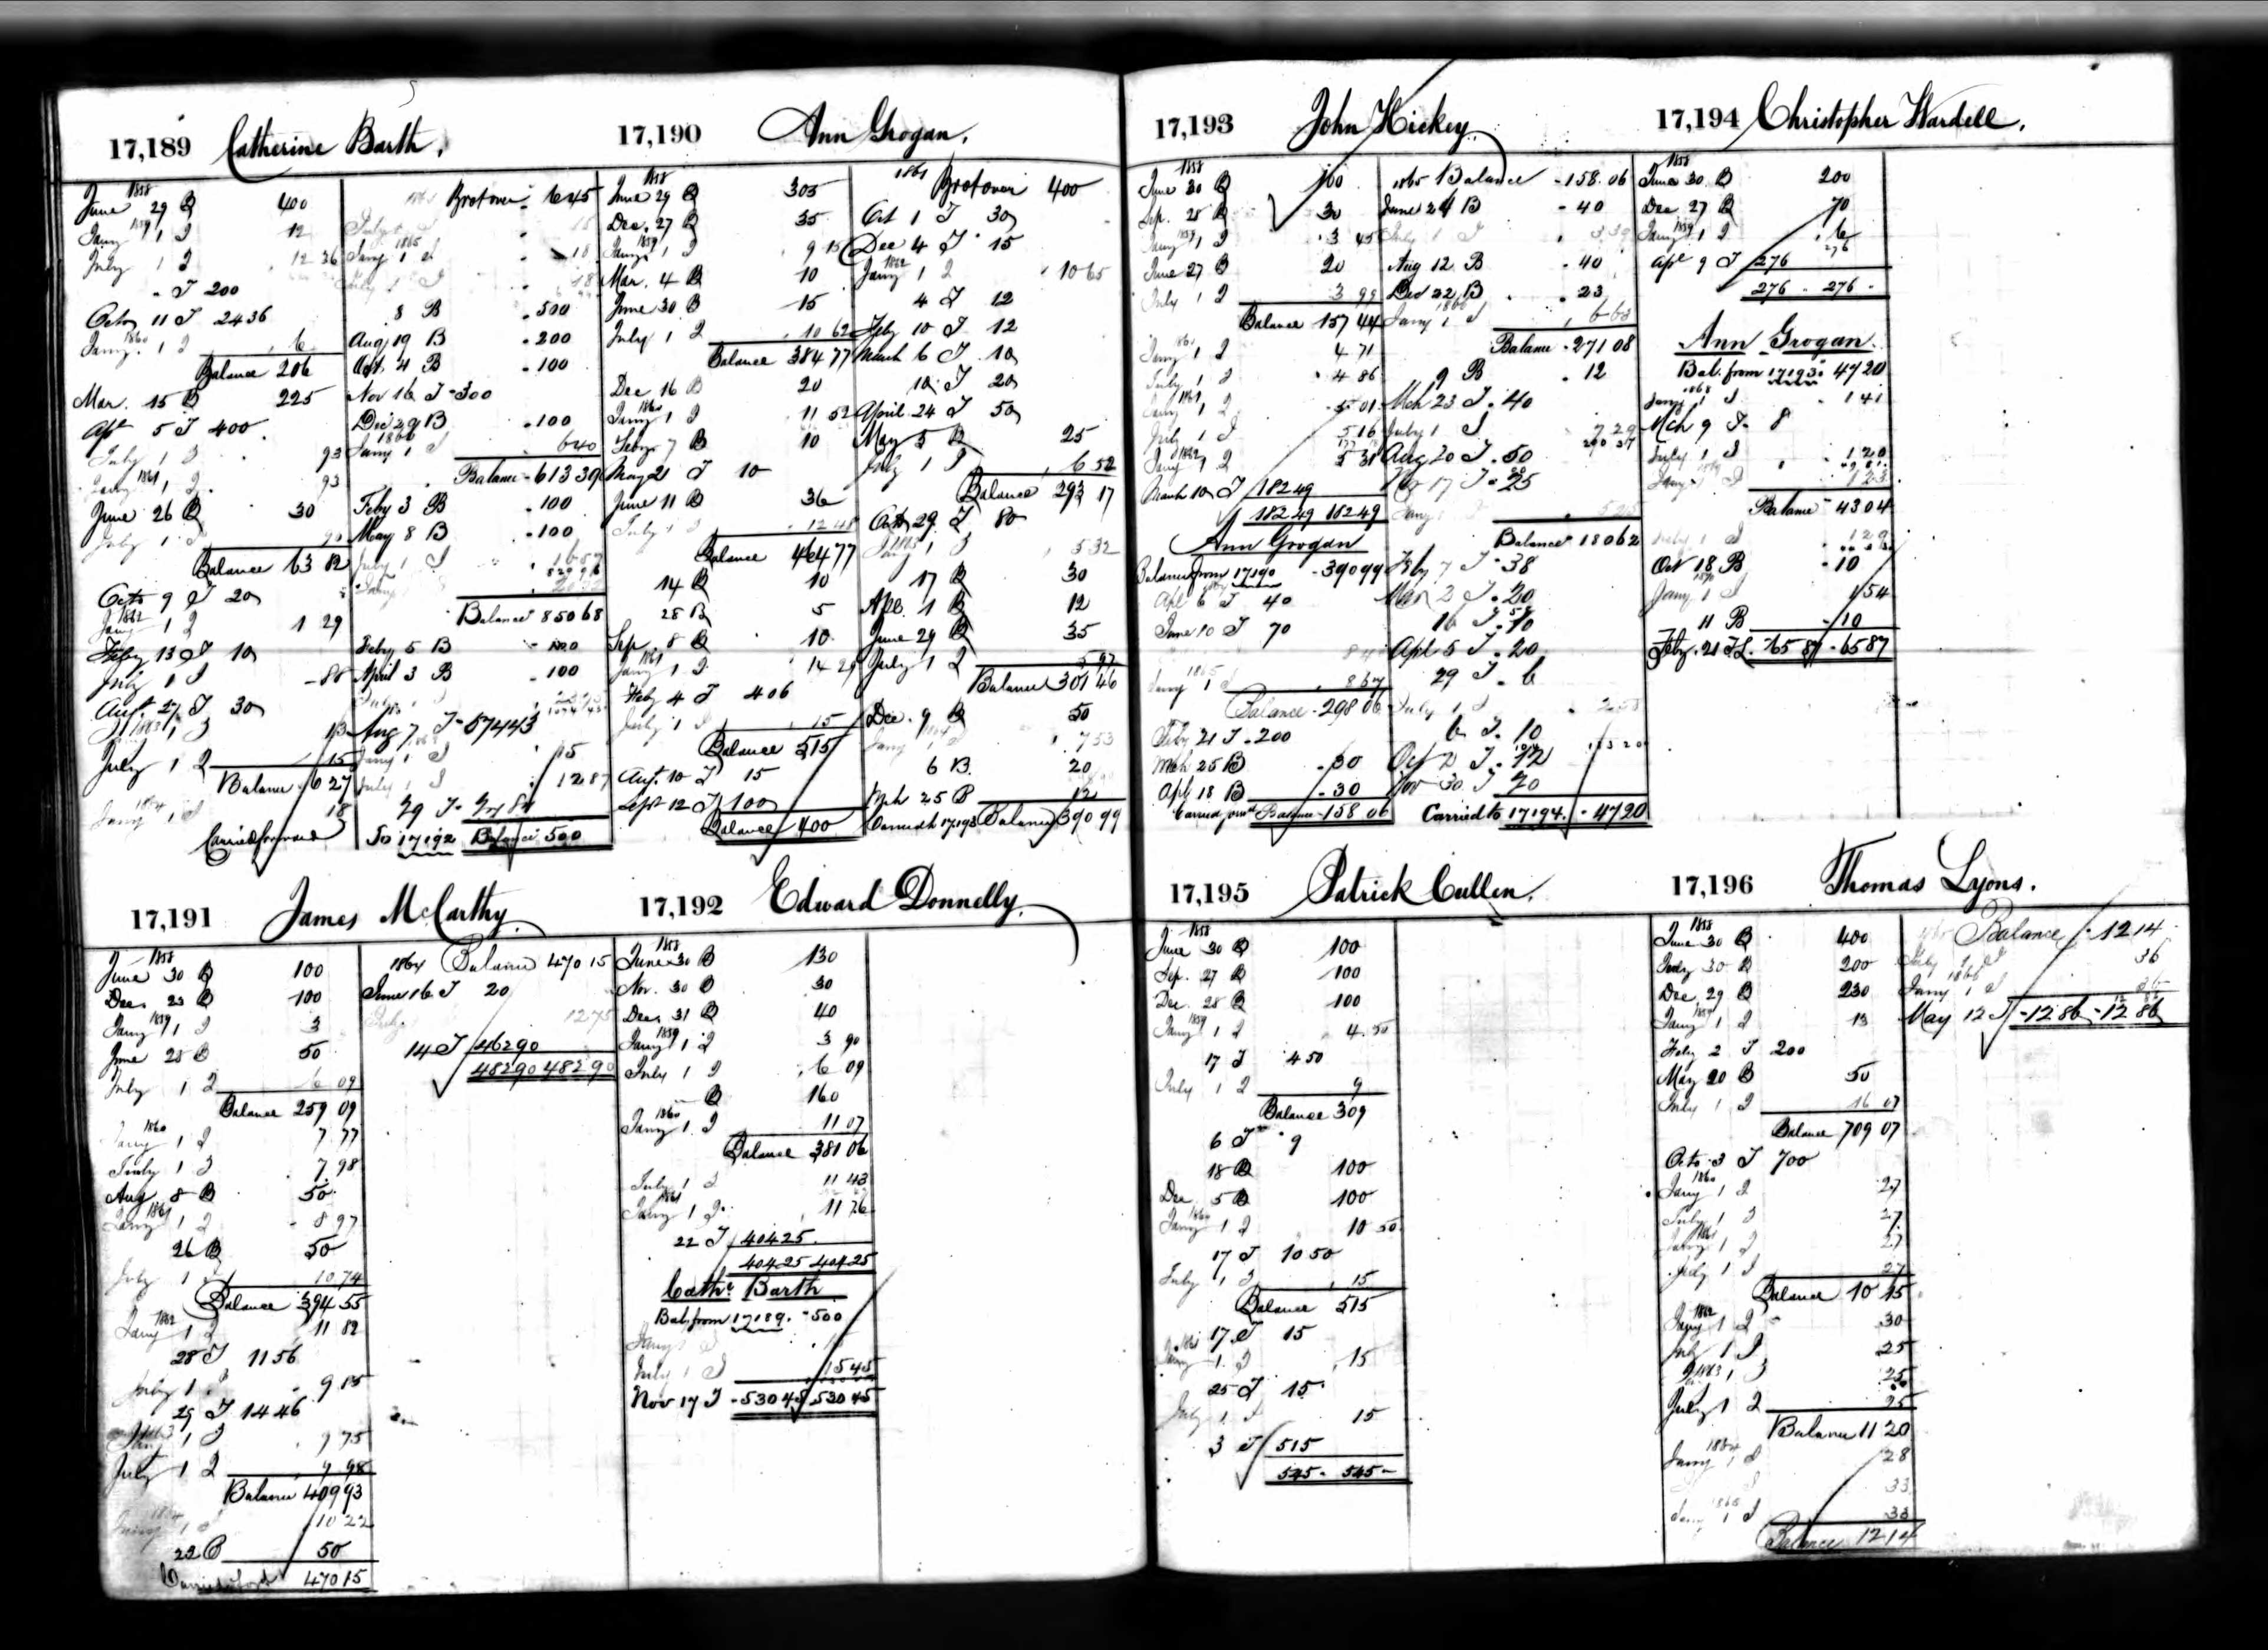 17,189 Catherine Barth.
1858
June 29 B 400
1859
Jany 1 I 12
July 1 I 12 36
" I 200
Octo 11 I 24 36
1860
Jany. 1 I 6
Balance 206
Mar. 15 B 225
Apl 5 I 400
July 1 I 93
1861
Jany 1 I 93
June 26 B 30
July 1 I
Balance 63 82
Octo 9 I 20
1862
Jany 1 I 1 29
Feby 13 I 10
July 1 I 88
Augt. 27 I 30
1863
1 I 13
July 1 I 15
Balance 6 27
1864
Jany 1 I 18
Carried forward
Brot over 6 45
July 1 I
1865
Jany 1 I 18
July 1 I 18
8 B 500
Aug 19 B 200
Oct. 4 B 100
Nov 16 I 300
Dec 29 B 100
1866
Jany 1 I 6 40
Balance 613 39
Feby 3 B 100
May 8 B 100
July 1 I
Balance 850 68
Feby 5 B 100
April 3 B 100
Aug 7 I 574 43
Jany 1 I 15
July 1 I 12 87
29 I
To 17192 Balance 500
17,190 Ann Grogan.
1858
June 29 B 305
Dec. 27 B 35
1859
Jany. 1 I 9 15
Mar. 4 B 10
June 30 B 15
July 1 I 10 62
Balance 384 77
Dec 16 B 20
1860
Jany 1 I 11 52
Feby 7 B 10
May 21 I 10
June 11 B 36
July 1 I 12 48
Balance 464 77
14 B 10
28 B 5
Sep 8 B 10
1861
Jany 1 I 14 29
Feby 4 I 4 06
July 1 I 15
Balance 515
Augt. 10 I 15
Sept 12 I 100
Balance 400
1861
Brot over 400
Oct 1 I 30
Dec 4 I 15
1862
Jany 1 I 10 65
4 I 12
Feby 10 I 12
March 6 I 10
10 I 20
April 24 I 50
May 5 B 25
July 1 I 6 52
Balance 293 17
Octo 29 I 80
1863
Jany 1 I 5 32
17 B 30
Apl 1 B 12
June 29 B 35
July 1 I 5 97
Balance 301 46
Dec. 9 B 50
Jany 1 I 7 53
6 B. 20
Mch 25 B 12
Carried to 17193 Balance 390 99
17,191 James McCarthy.
1858
June 30 B 100
Dec. 23 B 100
1859
Jany 1 I 3
June 28 B 50
July 1 I 6 09
Balance 259 09
1860
Jany 1 I 7 77
July 1 I 7 98
Aug 8 B 50
1861
Jany 1 I 8 97
26 B 50
July 1 I 10 74
Balance 394 55
1862
Jany 1 I 11 82
28 I 11 56
July 1 I 9 15
29 I 14 46
1863
Jany 1 I 9 75
July 1 I 9 98
Balance 409 93
1864
Jany 1 I 10 22
23 B 50
Carried ford 470 15
1864 Balance 470 15
June 16 I 20
July 12 75
14 I 462 90
482 90 482 90
17,192 Edward Donnelly.
1858
June 30 B 130
Nov. 30 B 30
Dec. 31 B 40
1859
Jany 1 I 3 90
July 1 I 6 09
" B 160
1860
Jany 1. I 11 07
Balance 381 06
July 1 I 11 43
1861
Jany 1 I 11 76
22 I 404 25
404 25 404 25
Cathe. Barth
Bal. from 17189. 500
Jany 1 I 15
July 1 I 15 45
Nov 17 I 530 45 530 45
17,193 John Hickey.
1858
June 30 B 100
Sep. 28 B 30
1859
Jany 1 I 3 45
June 27 B 20
July 1 I 3 99
Balance 157 44
Jany 1 I 4 71
July 1 I 4 86
1861
Jany 1 I 5 01
July 1 I 5 16
1862
Jany 1 I 5 31
March 10 I 182 49
182 49 182 49
Ann Grogan
Balance from 17190 390 99
Apl 6 I 40
June 10 I 70
1865
Jany 1 I 8 67
Balance 298 06
Feby 21 I 200
Mch 25 B 30
Apl 18 B 30
Carried ford Balance 158 06
1865 Balance 158.06
June 24 B 40
July 1 I
Aug 12 B 40
Dec 22 B 23
1866
Jany 1 I
Balance 271 08
9 B 12
Mch 23 I 40
July 1 I 7 29
Aug 20 I 50
17 I 25
Jany
Balance 180 62
Feby 7 I 38
Mar 2 I 20
16 I 10
Apl 5 I 20
29 I 6
July 1 I
6 I 10
Oct 2 I 12
Nov 30 I 70
Carried to 17194. 47 20
17,194 Christopher Wardell.
1858
June 30 B 200
Dec 27 B 70
1859
Jany 1 I 6
276
Apl 9 I 276
276 276
Ann Grogan.
Bal. from 17193 47 20
1868
Jany 1 I 1 41
Mch 9 I 8
July 1 I 1 20
Jany I 1 23
Balance 43 04
July 1 I 1 29
Oct 18 B 10
1870
Jany 1 I 1 54
11 B 10
Feby. 21 I 65 87 65 87
17,195 Patrick Cullen.
1858
June 30 B 100
Sep. 27 B 100
Dec. 28 B 100
1859
Jany 1 I 4.50
17 I 4 50
July 1 I 9
Balance 309
6 I 9
18 B 100
Dec 5 B 100
1860
Jany 1 I 10 50
17 I 10 50
July 1 I 15
Balance 515
17 I 15
1861
Jany 1 I 15
25 I 15
July 1 I 15
3 I 515
545 545
17,196 Thomas Lyons.
1858
June 30 B 400
July 30 B 200
Dec. 29 B 230
1859
Jany 1 I 13
Feby 2 I 200
May 20 B 50
July 1 I 16 07
Balance 709 07
Octo 3 I 700
1860
Jany 1 I 27
July 1 I 27
1861
Jany 1 I 27
July 1 I 27
Balance 10 15
1862
Jany 1 I 30
July 1 I 25
1863
1 I 25
July 1 I 25
Balance 11 20
1864
Jany 1 I 28
33
1865
Jany 1 I 33
Balance 12 14
Balance 12 14
July 1 I 36
1866
Jany 1 I 36
May 12 I 12 86 12 86